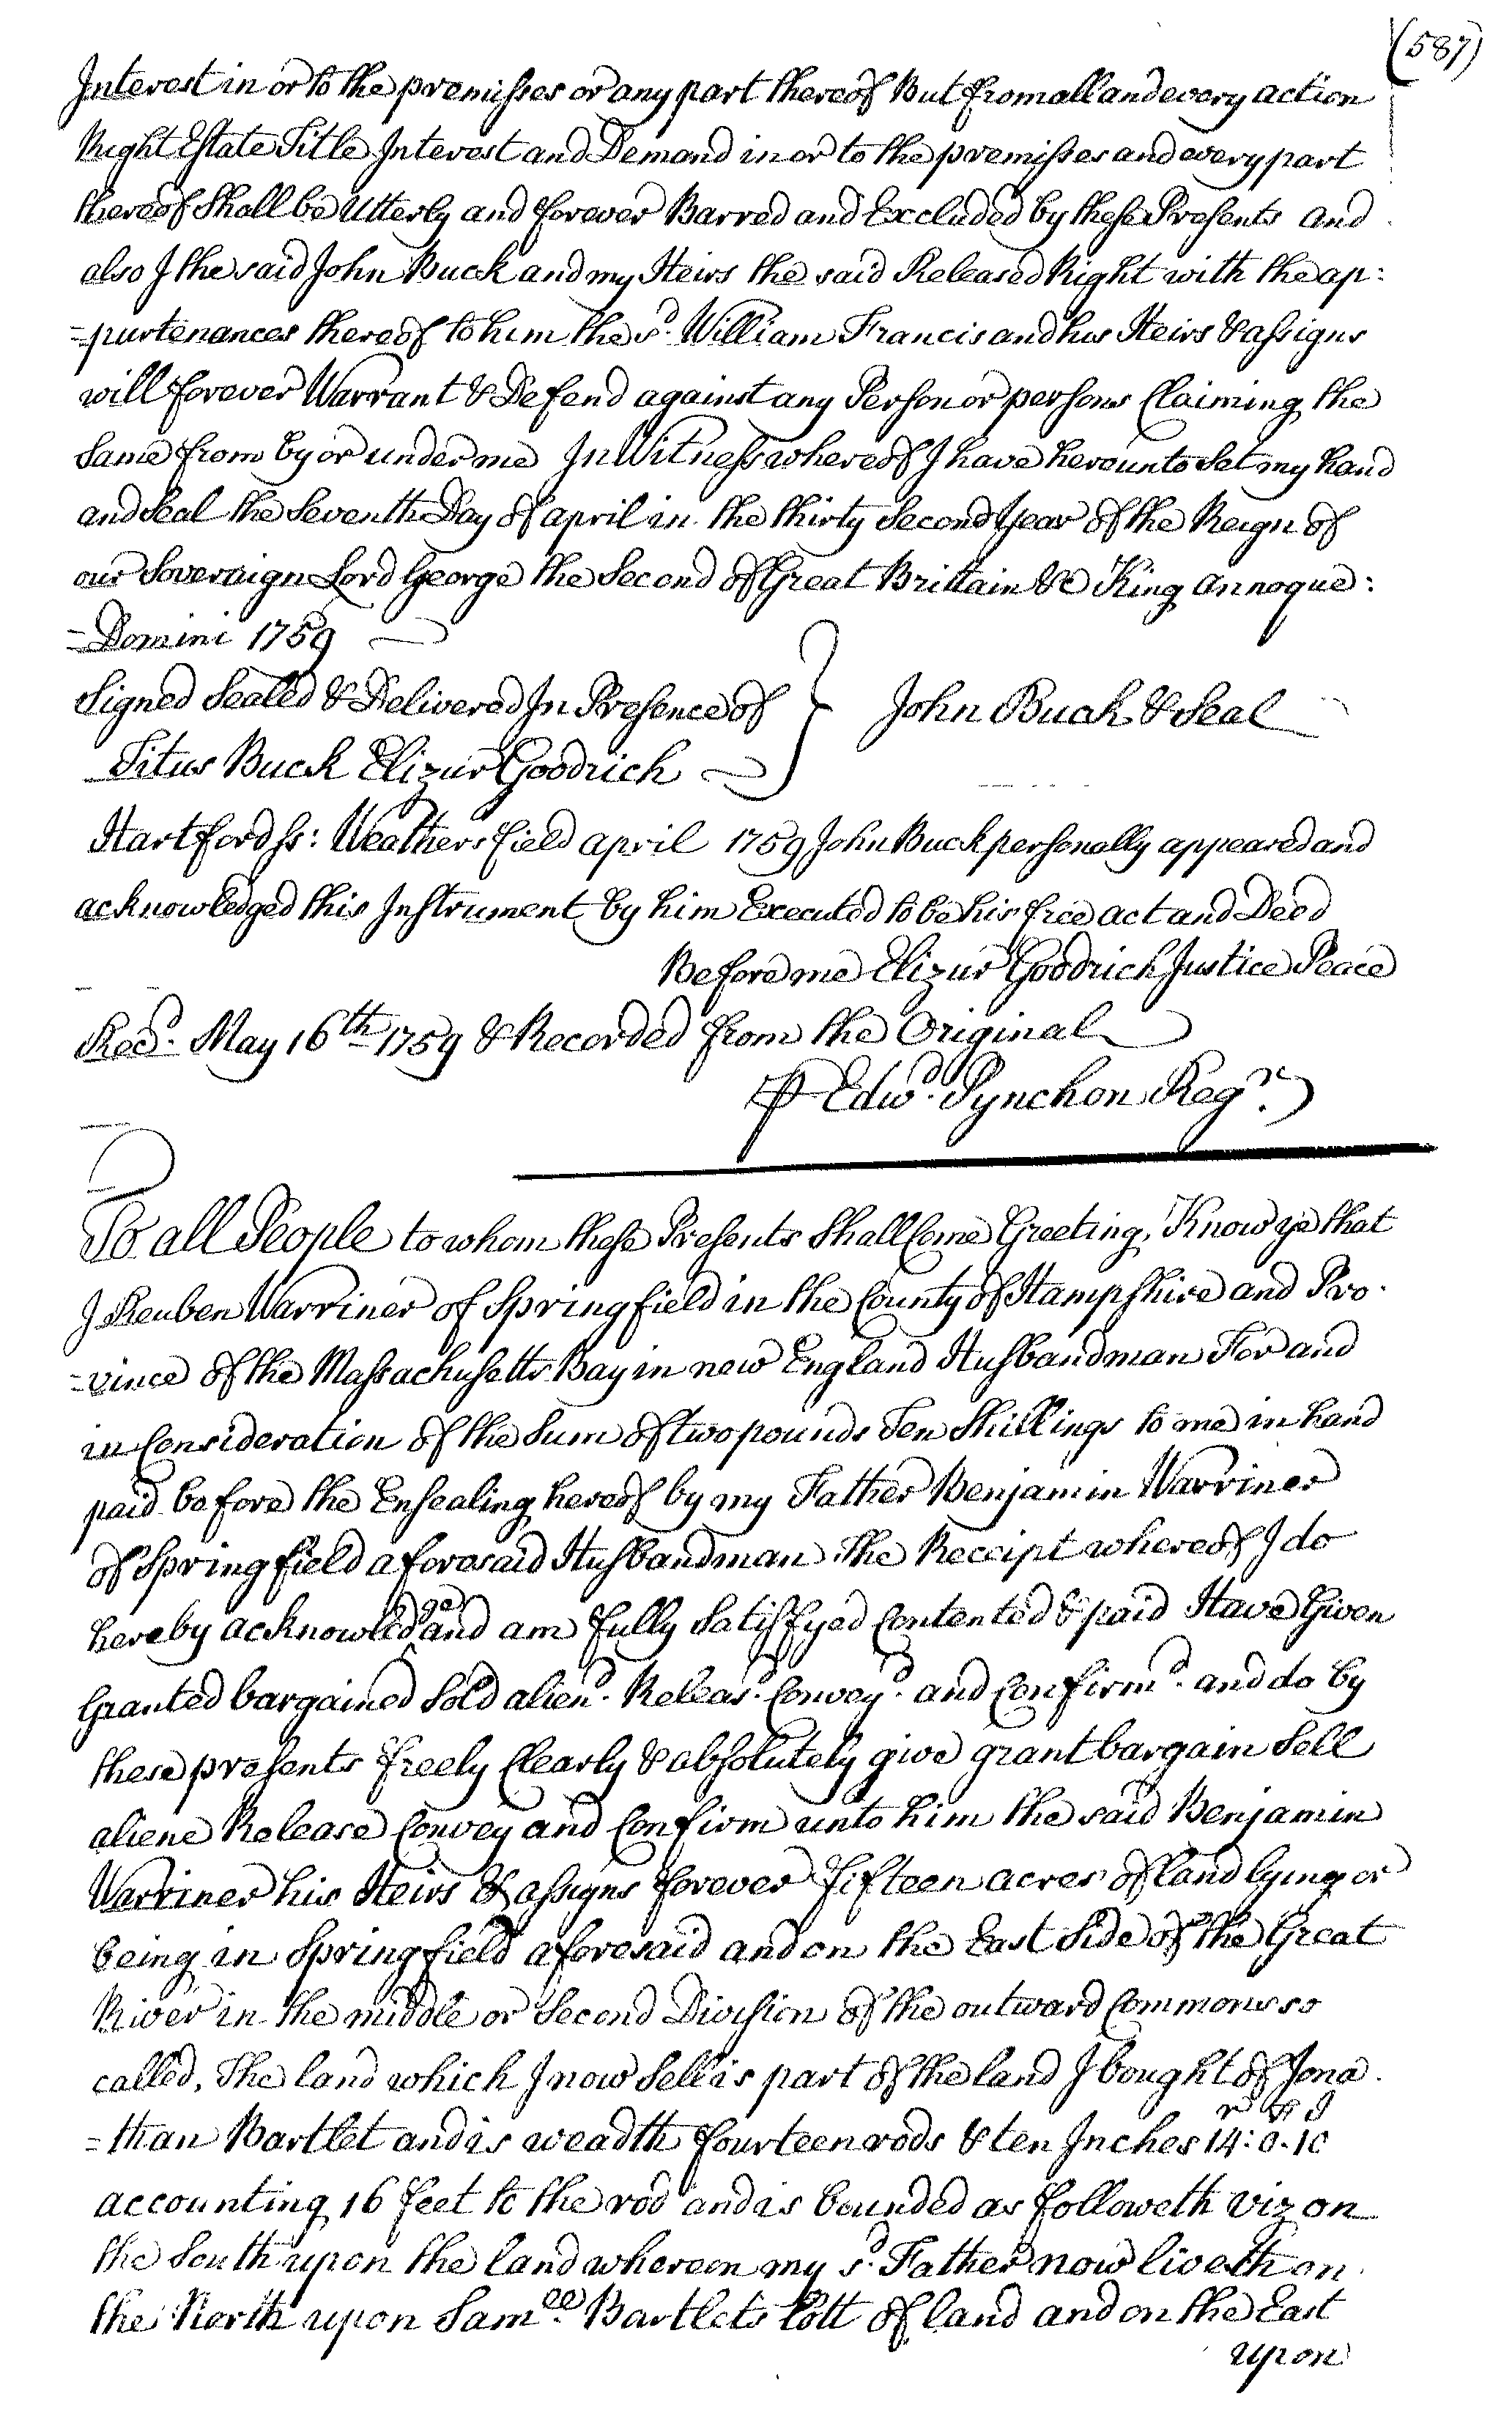 (587)
Interest in or to the premisses or any part thereof But from all and every action
Right Estate Title Interest and Demand in or to the premisses and every part
thereof Shall be Utterly and forever Barred and Excluded by these Presents and
also I the said John Buck and my Heirs the said Released Right with the ap:
=purtenances thereof to him the sd. William Francis and his Heirs & assigns
will forever Warrant & Defend against any Person or persons Claiming the
Same from by or under me In Witness whereof I have hereunto Set my hand
and Seal the Seventh Day of april in the thirty Second Year of the Reign of
our Soveraign Lord George the Second of Great Brittain &c King annoque:
=Domini 1759
Signed Sealed & Delivered In Presence of } John Buck & Seal
Titus Buck Elizur Goodrich
Hartford ss: Weathersfield april 1759 John Buck personally appeared and
acknowledged this Instrument by him Executed to be his free act and Deed
Before me Elizur Goodrich Justice Peace
Recd. May 16th 1759 & Recorded from the Original
P Edwd. Pynchon Regr.
To all People to whom these Presents Shall Come Greeting, Know ye that
I Reuben Warriner of Springfield in the County of Hampshire and Pro-
=vince of the Massachusetts Bay in new England Husbandman For and
in Consideration of the Sum of two pounds Ten Shillings to me in hand
paid before the Ensealing hereof by my Father Benjamin Warriner
of Springfield aforesaid Husbandman The Receipt whereof I do
hereby acknowledge and am fully Satisfyed Contented & paid Have Given
Granted bargained Sold aliend. Releasd. Conveyd. and Confirmd. and do by
these presents freely Clearly & absolutely give grant bargain Sell
aliene Release Convey and Confirm unto him the said Benjamin
Warriner his Heirs & assigns forever Fifteen acres of land lying or
being in Springfield aforesaid and on the East Side of the Great
River in the middle or Second Division of the outward Commons so
called, The land which I now Sell is part of the land I bought of Jona-
=than Bartlet and is weadth fourteen rods & ten Inches 14:0.10
accounting 16 feet to the rod and is bounded as followeth viz on
the South upon the land whereon my sd. Father now liveth on
the North upon Samll. Bartlets lott of land and on the East
upon